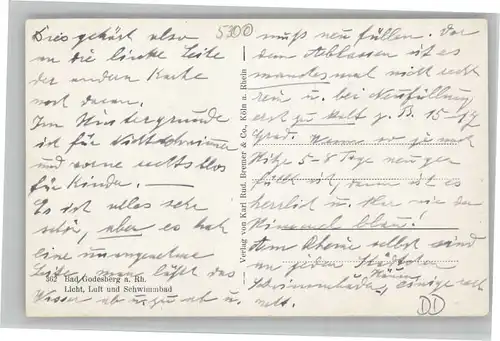 Dies gehört also
an die linke Seite
der anderen Karte
noch daran.
Im Hintergrunde
ist für Nichtschwimmer
und vorne rechts bloß
für Kinder. —
Es ist alles sehr
schön, aber es hat
eine unangenehme
Seite, man läßt das
Wasser ab u. zu ab u.
362 Bad Godesberg a. Rh.
Licht, Luft und Schwimmbad
Verlag von Karl Rud. Bremer & Co., Köln a. Rhein
5300
muß neu füllen. Vor
dem Ablassen ist es
manchesmal nicht recht
rein u. bei Neufüllung
erst zu kalt z. B. 15-17
Grad. Wenn es je nach
Hitze 5-8 Tage neu ge-
füllt ist, dann ist es
herrlich u. klar wie der
Himmel blau!
Am Rheine selbst sind
an jeden
u. Männer
einige sehr
nett.
DD